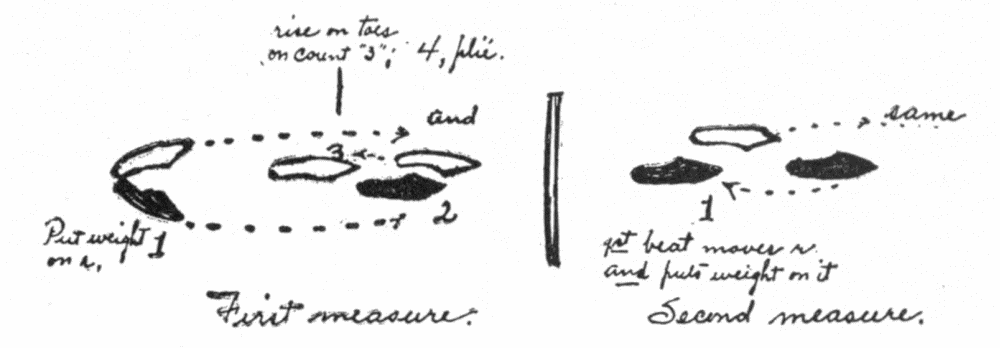 rise on toes
on count "3"; 4, plié.
and
3
2
Put weight 1
on r,
First measure.
same
1
1st beat moves r.
and puts weight on it
Second measure.